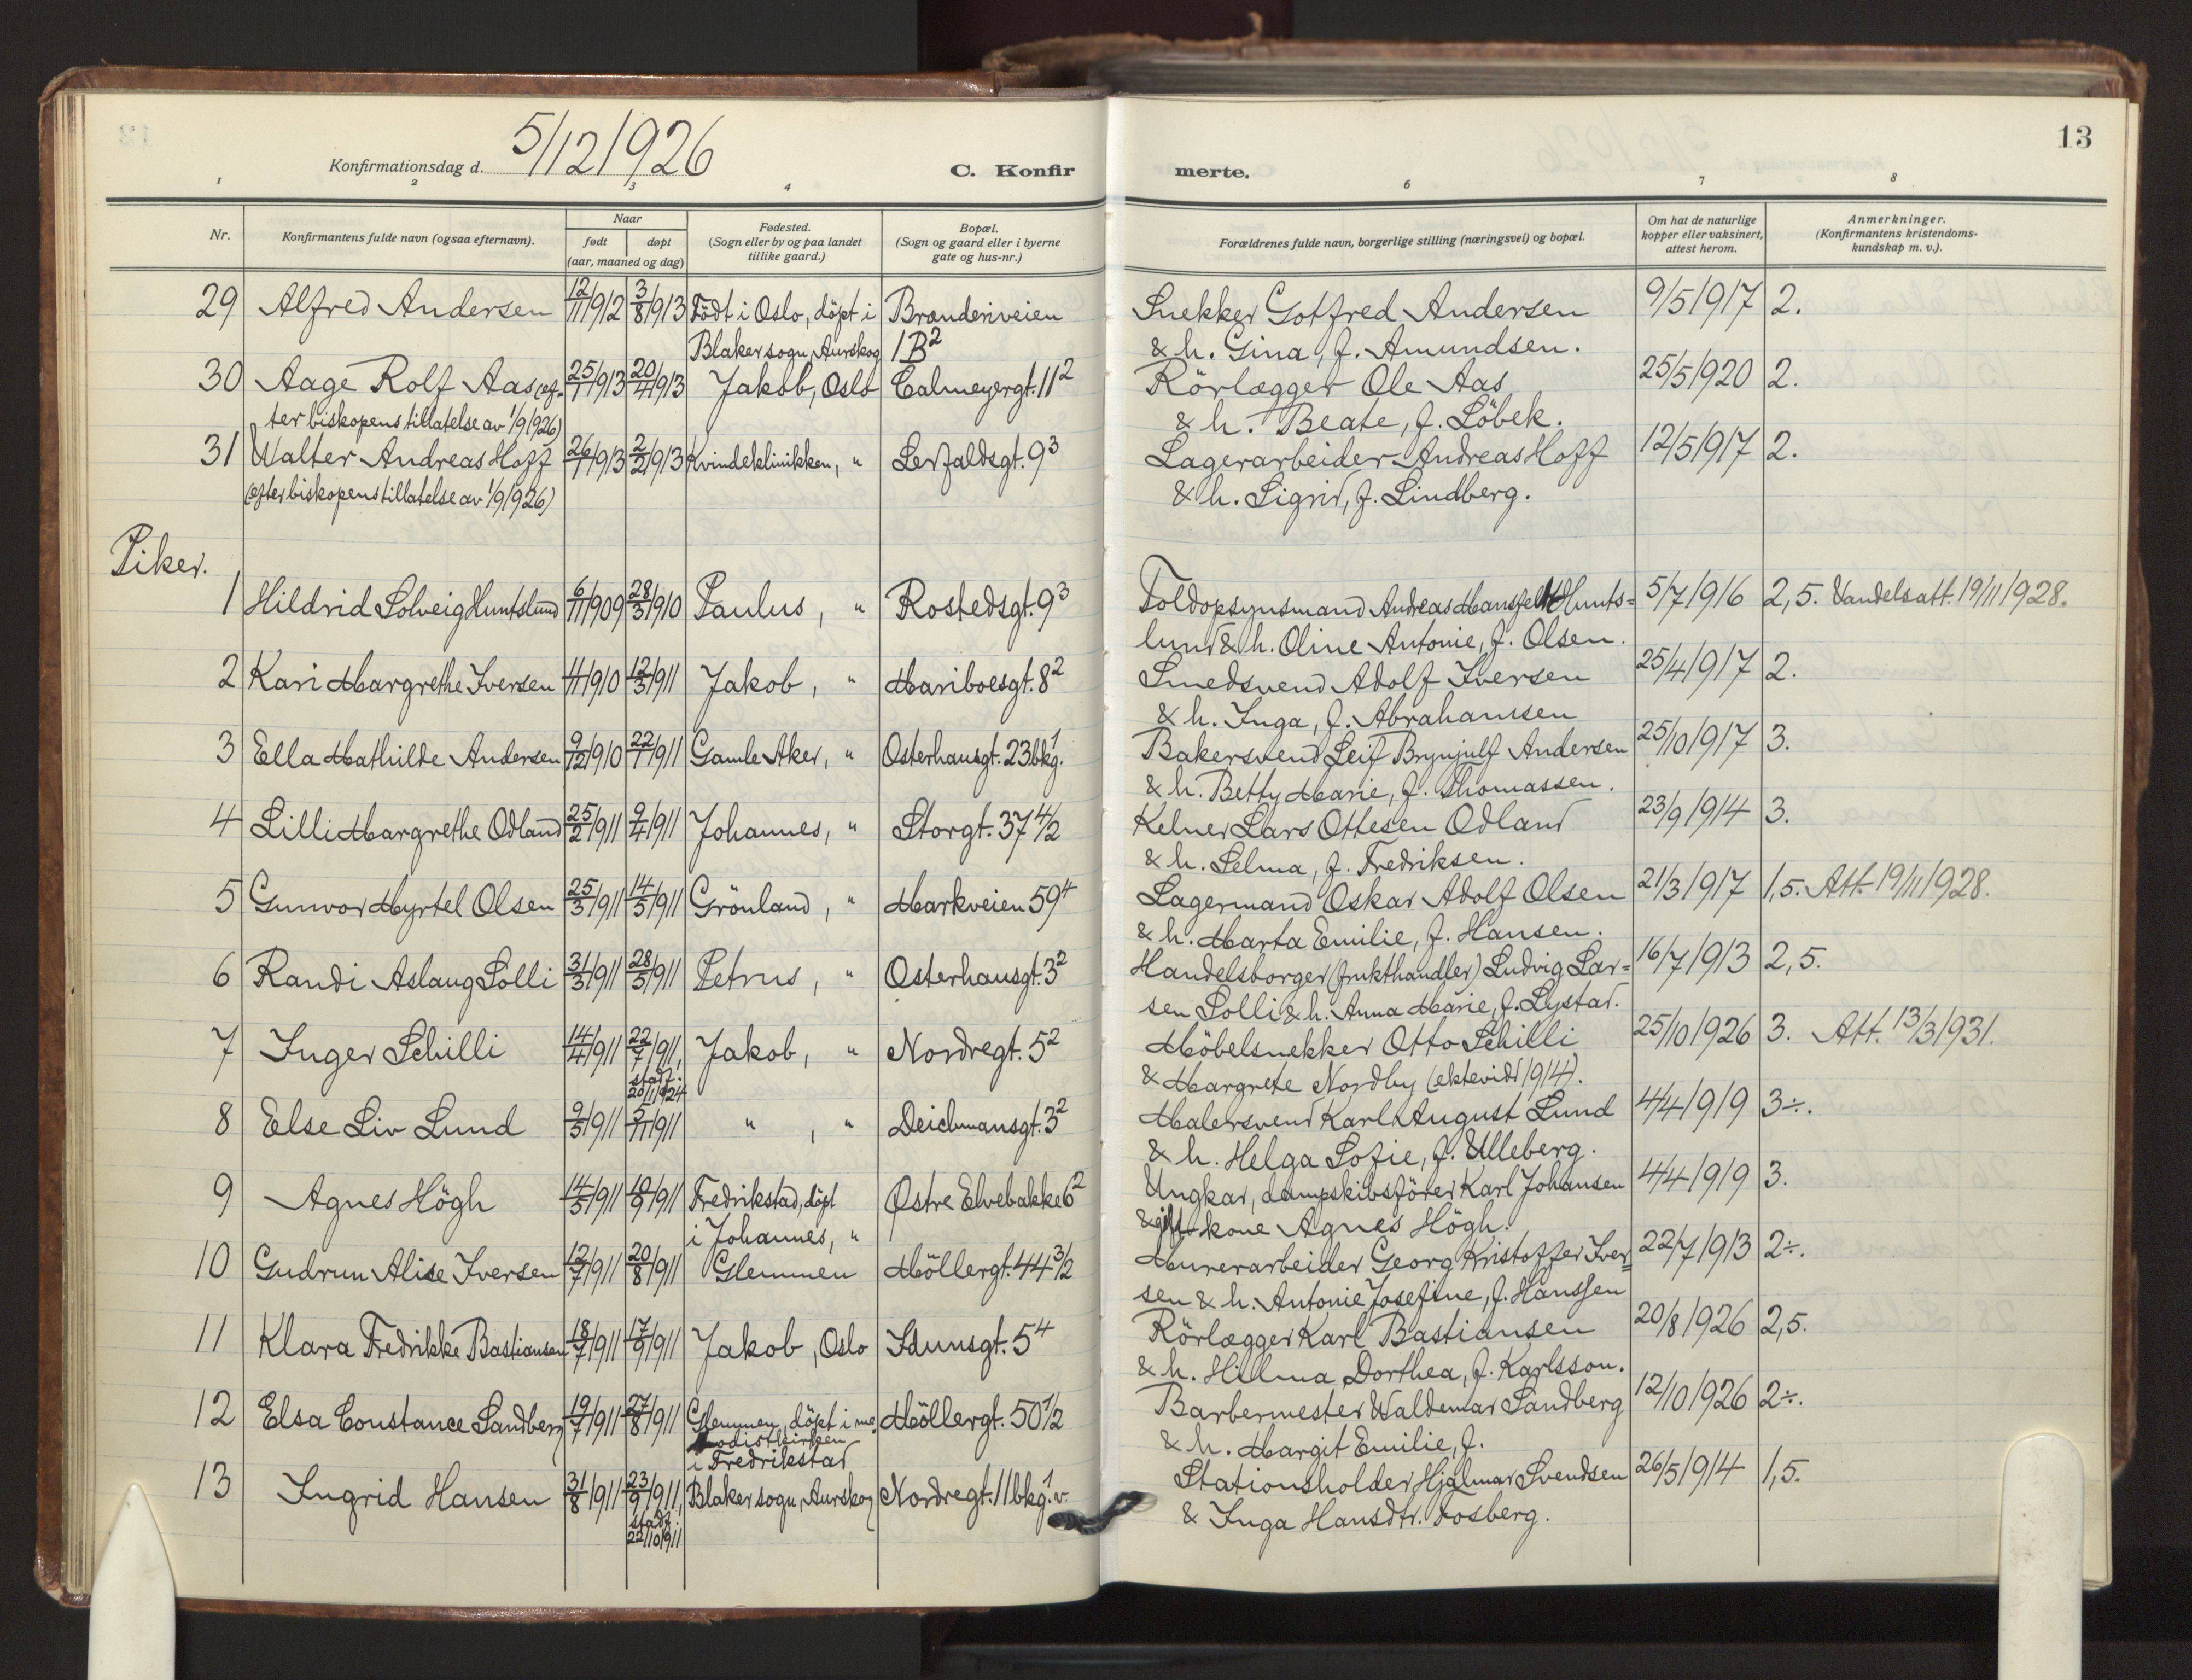 13
Konfirmationsdag d. 5/12/1926
C. Konfir
merte.
1 2 3 4 6 7 8
Nr.
Konfirmantens fulde navn (ogsaa efternavn).
Naar
født
døpt
(aar, maaned og dag)
Fødested.
(Sogn eller by og paa landet
tillike gaard.)
Bopæl.
(Sogn og gaard eller i byerne
gate og hus-nr.)
Forældrenes fulde navn, borgerlige stilling (næringsvei) og bopæl.
Om hat de naturlige
kopper eller vaksinert,
attest herom.
Anmerkninger.
(Konfirmantens kristendoms-
kundskap m. v.).
29 Alfred Andersen 12/11 1912 3/8 1913 Födt i Oslo, döpt i Brænderiveien Snekker Gotfred Andersen 9/5 1917 2.
Blaker sogn, Aurskog 1B² & h. Gina, f. Amundsen.
30 Aage Rolf Aas (ef- 25/1 1913 20/4 1913 Jakob, Oslo Calmeyergt. 11² Rörlægger Ole Aas 25/5 1920 2.
ter biskopens tillatelse av 1/9 1926) & h. Beate, f. Löbek.
31 Walter Andreas Hoff 26/1 1913 2/2 1913 Kvindeklinikken, " Lerfaldsgt. 9³ Lagerarbeider Andreas Hoff 12/5 1917 2.
(efter biskopens tillatelse av 1/9 1926) & h. Sigrid, f. Lindberg.
Piker.
1 Hildrid Solveig Huntslund 6/11 1909 28/3 1910 Paulus, " Rostedsgt. 9³ Toldopsynsmand Andreas Mansfeldt Hunts= 5/7 1916 2,5. Vandelsatt. 19/11 1928.
lund & h. Oline Antonie, f. Olsen.
2 Kari Margrethe Iversen 1/11 1910 12/3 1911 Jakob, " Mariboesgt. 8² Smedsvend Adolf Iversen 25/4 1917 2.
& h. Inga, f. Abrahamsen
3 Ella Mathilde Andersen 9/12 1910 22/1 1911 Gamle Aker, " Osterhausgt. 23 bkg.¹ Bakersvend Leif Brynjulf Andersen 25/10 1917 3.
& h. Betty Marie, f. Thomassen.
4 Lilli Margrethe Odland 25/2 1911 9/4 1911 Johannes, " Storgt. 37 4/2 Kelner Lars Ottesen Odland 23/9 1914 3.
& h. Selma, f. Fredriksen.
5 Gunvor Myrtel Olsen 25/3 1911 14/5 1911 Grönland, " Markveien 59⁴ Lagermand Oskar Adolf Olsen 21/3 1917 1,5. Att. 19/11 1928.
& h. Marta Emilie, f. Hansen.
6 Randi Aslaug Solli 31/3 1911 28/5 1911 Petrus, " Osterhausgt. 3² Handelsborger (frukthandler) Ludvig Lar= 16/7 1913 2,5.
sen Solli & h. Anna Marie, f. Lystad.
7 Inger Schilli 14/4 1911 22/7 1911, Jakob, " Nordregt. 5² Möbelsnekker Otto Schilli 25/10 1926 3. Att. 13/3 1931.
stadf. 20/11 1924 & Margrete Nordby (ektevidd 1914).
8 Else Liv Lund 9/5 1911 5/11 1911 " , " Deichmansgt. 3² Malersvend Karl August Lund 4/4 1919 3÷.
& h. Helga Sofie, f. Ulleberg.
9 Agnes Högh 14/5 1911 10/9 1911 Fredrikstad, döpt Østre Elvebakke 6² Ungkar, dampskibsförer Karl Johansen 4/4 1919 3.
i Johannes, " & gift kone Agnes Högh.
10 Gudrun Alise Iversen 12/7 1911 20/8 1911 Glemmen Möllergt. 44 3/2 Murerarbeider Georg Kristoffer Iver= 22/7 1913 2÷.
sen & h. Antonie Josefine, f. Hanssen
11 Klara Fredrikke Bastiansen 18/7 1911 17/9 1911 Jakob, Oslo Idunsgt. 5⁴ Rörlægger Karl Bastiansen 20/8 1926 2,5.
& h. Hilma Dorthea, f. Karlsson.
12 Elsa Constance Sandberg 19/7 1911 27/8 1911 Glemmen, döpt i me- Möllergt. 50 1/2 Barbermester Waldemar Sandberg 12/10 1926 2÷.
todistkirken
i Fredrikstad & h. Margit Emilie, f.
13 Ingrid Hansen 31/8 1911 23/9 1911, Blaker sogn, Aurskog Nordregt. 11 bkg.¹ v. Stationsholder Hjalmar Svendsen 26/5 1914 1,5.
stadf. 22/10 1911 & Inga Hansdtr. Fosberg.